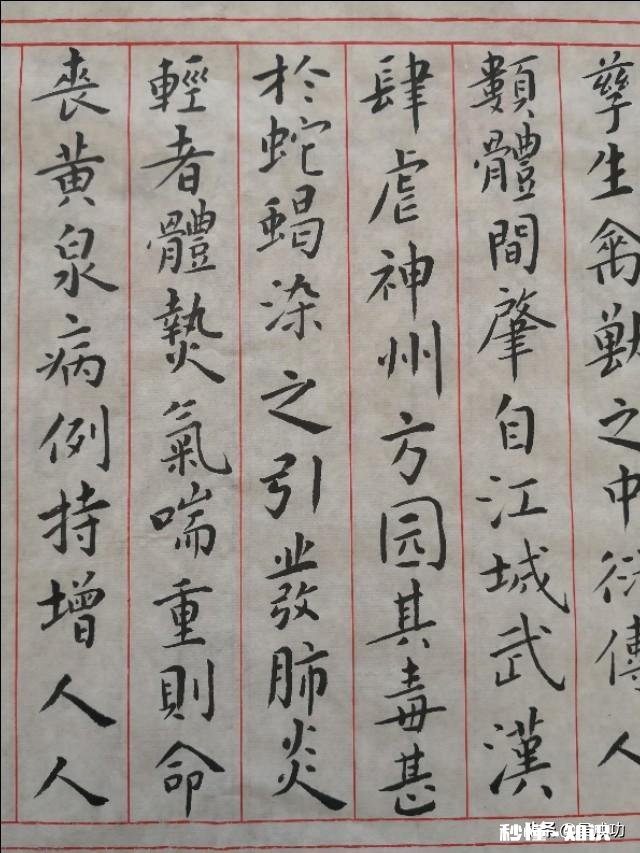 生禽獸之中衍傳人
類體間肇自江城武漢
肆虐神州方园其毒甚
於蛇蝎染之引發肺炎
輕者體熱氣喘重則命
喪黄泉病例持增人人